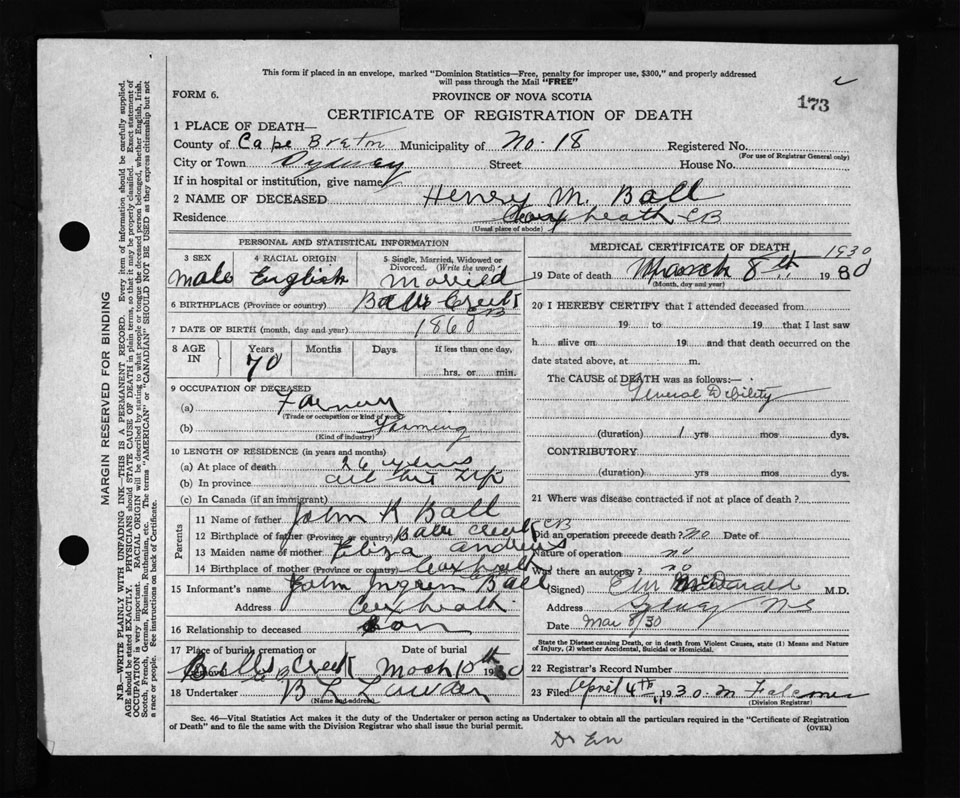 This form if placed in an envelope, marked "Dominion Statistics—Free, penalty for improper use, $300," and properly addressed
will pass through the Mail "FREE"
FORM 6.
PROVINCE OF NOVA SCOTIA
173
CERTIFICATE OF REGISTRATION OF DEATH
1 PLACE OF DEATH—
County of Cape Breton Municipality of No. 18 Registered No.
(For use of Registrar General only)
City or Town Sydney Street House No.
If in hospital or institution, give name
2 NAME OF DECEASED Henry M. Ball
Residence Coxheath CB
(Usual place of abode)
PERSONAL AND STATISTICAL INFORMATION
3 SEX 4 RACIAL ORIGIN 5 Single, Married, Widowed or Divorced. (Write the word)
Male English Married
6 BIRTHPLACE (Province or country) Balls Creek CB
7 DATE OF BIRTH (month, day and year) 1860
8 AGE IN Years Months Days If less than one day,
70 hrs. or min.
9 OCCUPATION OF DECEASED
(a) Farmer
(Trade or occupation or kind of work)
(b) Farming
(Kind of industry)
10 LENGTH OF RESIDENCE (in years and months)
(a) At place of death 26 years
(b) In province all his life
(c) In Canada (if an immigrant)
Parents
11 Name of father John K Ball
12 Birthplace of father (Province or country) Balls Creek CB
13 Maiden name of mother Eliza Andrews
14 Birthplace of mother (Province or country) Coxheath
15 Informant's name John Ingram Ball
Address Coxheath
16 Relationship to deceased Son
17 Place of burial cremation or removal Date of burial
Balls Creek CB March 10th 1930
18 Undertaker
(Name and address)
MEDICAL CERTIFICATE OF DEATH
1930
19 Date of death March 8th 1930
(Month, day and year)
20 I HEREBY CERTIFY that I attended deceased from
19 to 19 that I last saw
h alive on 19 and that death occurred on the
date stated above, at m.
The CAUSE of DEATH was as follows:—
General Debility
(duration) 1 yrs mos dys.
CONTRIBUTORY
(duration) yrs mos dys.
21 Where was disease contracted if not at place of death?
Did an operation precede death? no Date of
Nature of operation no
Was there an autopsy? no
(Signed) McDonald M.D.
Address Sydney NS
Date Mar 8/30
State the Disease causing Death, or in death from Violent Causes, state (1) Means and Nature
of Injury, (2) whether Accidental, Suicidal or Homicidal.
22 Registrar's Record Number
23 Filed April 4th 1930. M Falconer
(Division Registrar)
Sec. 46—Vital Statistics Act makes it the duty of the Undertaker or person acting as Undertaker to obtain all the particulars required in the "Certificate of Registration
of Death" and to file the same with the Division Registrar who shall issue the burial permit.
(OVER)
MARGIN RESERVED FOR BINDING
N.B.—WRITE PLAINLY WITH UNFADING INK—THIS IS A PERMANENT RECORD. Every item of information should be carefully supplied.
AGE should be stated EXACTLY. PHYSICIANS should STATE CAUSE OF DEATH in plain terms, so that it may be properly classified. Exact statement of
OCCUPATION is very important. RACIAL ORIGIN will be described by stating to what people or tongue the deceased person belonged, whether English, Irish,
Scotch, French, German, Russian, Ruthenian, etc. The terms "AMERICAN" or "CANADIAN" SHOULD NOT BE USED as they express citizenship but not
a race or people. See instructions on back of Certificate.